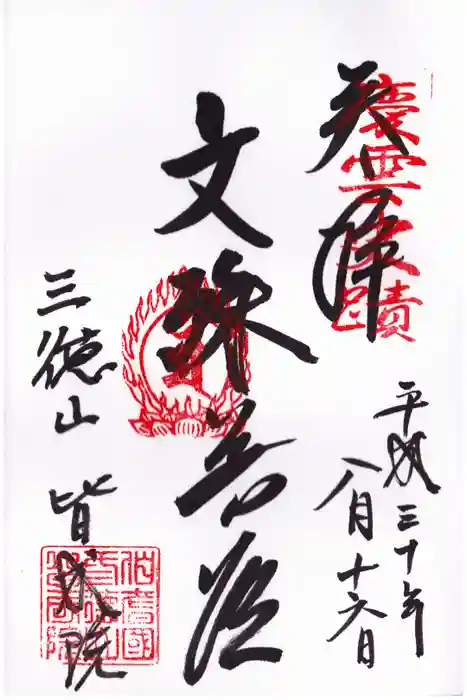 奉拝
慶雲降蹟
平成三十年
八月十六日
文殊菩薩
三徳山 皆成院